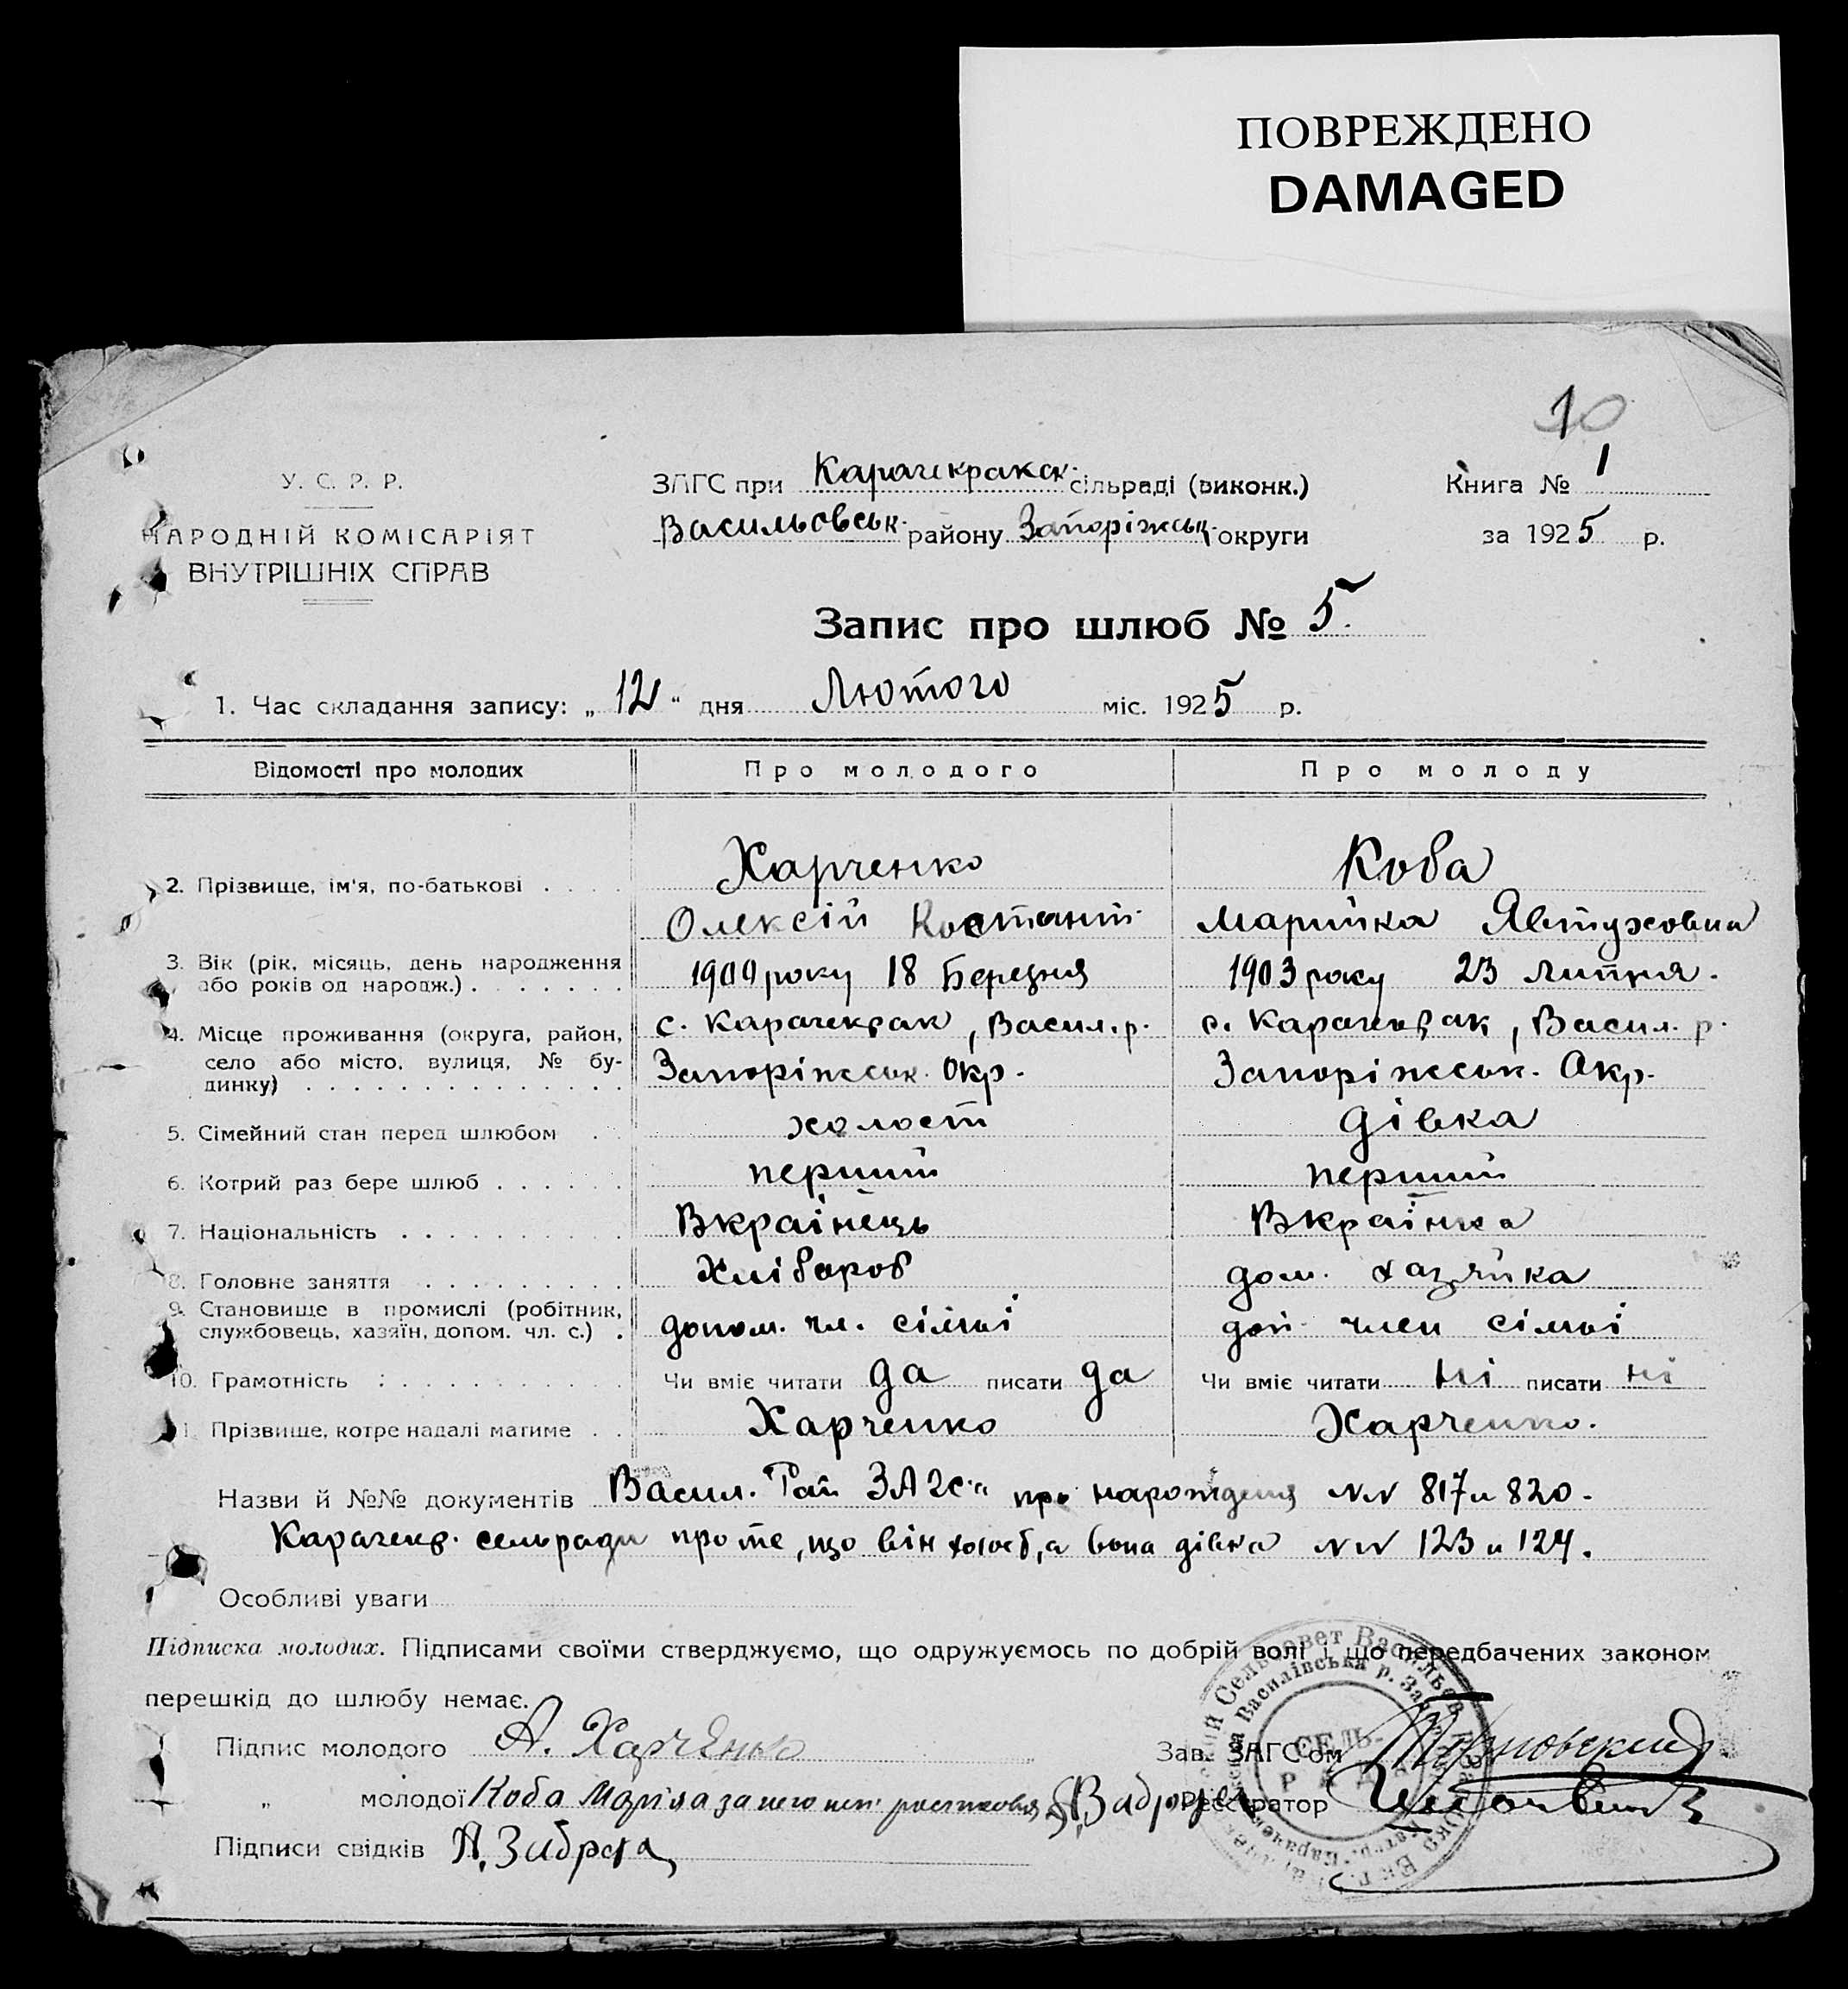 ПОВРЕЖДЕНО
DAMAGED
10
У. С. Р. Р.
НАРОДНІЙ КОМІСАРІЯТ
ВНУТРІШНІХ СПРАВ
ЗАГС при Карачекракск. сільраді (виконк.)
Васильовськ. району Запоріжськ. округи
Книга № 1
за 1925 р.
Запис про шлюб № 5.
1. Час складання запису: „ 12 “ дня Лютого міс. 1925 р.
Відомості про молодих Про молодого Про молоду
2. Прізвище, ім'я, по-батькові . . . . Харченко Коба
Олексій Костант. Марийка Явтуховна
3. Вік (рік, місяць, день народження або років од народж.) . . . . . . . 1900 року 18 Березня 1903 року 23 Липня.
4. Місце проживання (округа, район, село або місто, вулиця, № будинку) . . . . . . . . . . . . . . с. Карачекрак, Васил. р. с. Карачекрак, Васил. р.
Запоріжськ. Окр. Запоріжськ. Окр.
5. Сімейний стан перед шлюбом . . холост дівка
6. Котрий раз бере шлюб . . . . . . перший перший
7. Національність . . . . . . . . . . Вкраїнець Вкраїнка
8. Головне заняття . . . . . . . . . Хлібороб дом. хазяйка
9. Становище в промислі (робітник, службовець, хазяїн, допом. чл. с.) . допом. чл. сімьї доп. член сімьї
10. Грамотність : . . . . . . . . . . . Чи вміє читати да писати да Чи вміє читати ні писати ні
11. Прізвище, котре надалі матиме . . Харченко Харченко.
Назви й №№ документів Васил. Рай ЗАГС'а про народження NN 817 и 820.
Карачекр. сельради про те, що він холост, а вона дівка NN 123 и 124.
Особливі уваги
Підписка молодих. Підписами своїми стверджуємо, що одружуємось по добрій волі і що передбачених законом
перешкід до шлюбу немає.
Підпис молодого А. Харченко
Зав. ЗАГС'ом
„ молодої Коба Марія за него
Реєстратор
Підписи свідків
СЕЛЬ-
РАДА